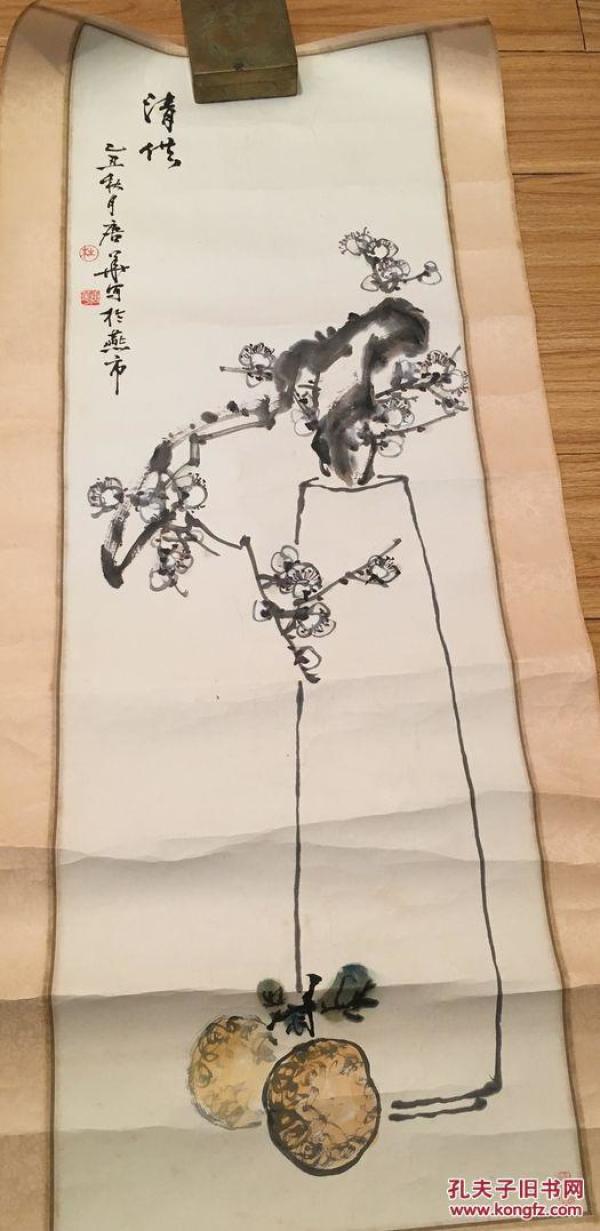 清供
乙丑秋月唐华写於燕市
孔夫子旧书网
www.kongfz.com